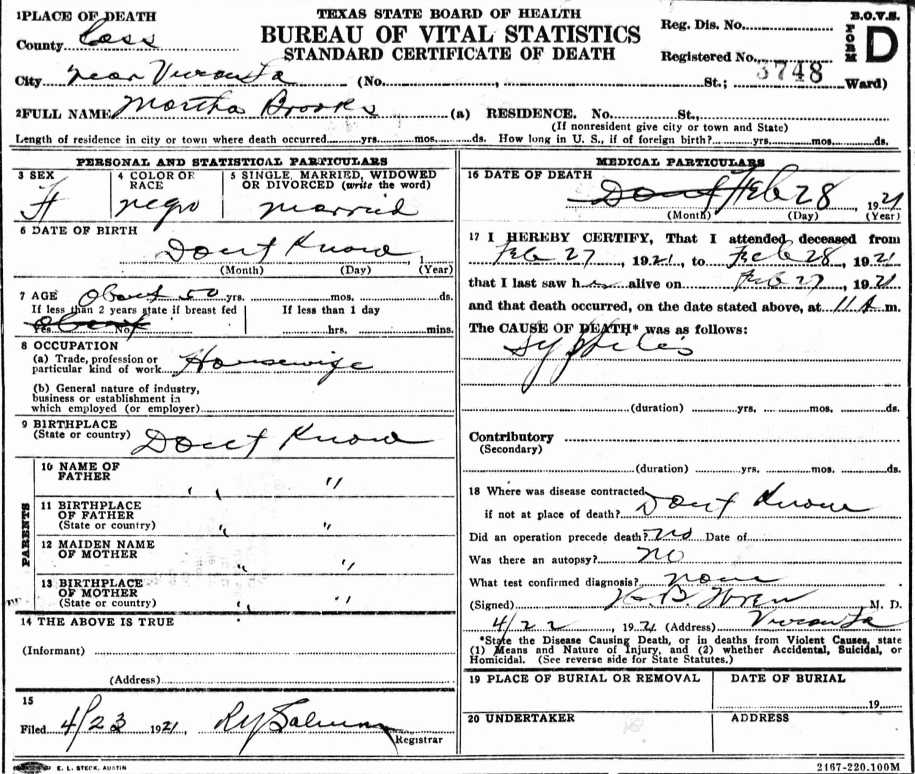 TEXAS STATE BOARD OF HEALTH
BUREAU OF VITAL STATISTICS
STANDARD CERTIFICATE OF DEATH
B.O.V.S.
FORM D
Reg. Dis. No.
Registered No. 3748
1 PLACE OF DEATH
County Cass
City near Vivian La (No. , St.; Ward)
2 FULL NAME Martha Brooks (a) RESIDENCE. No. St.,
(If nonresident give city or town and State)
Length of residence in city or town where death occurred yrs. mos. ds. How long in U. S., if of foreign birth? yrs. mos. ds.
PERSONAL AND STATISTICAL PARTICULARS
3 SEX F
4 COLOR OR RACE negro
5 SINGLE, MARRIED, WIDOWED OR DIVORCED (write the word) married
6 DATE OF BIRTH
Dont Know 1
(Month) (Day) (Year)
7 AGE about 50 yrs. mos. ds.
If less than 2 years state if breast fed
If less than 1 day
Yes No hrs. mins.
8 OCCUPATION
(a) Trade, profession or
particular kind of work Housewife
(b) General nature of industry,
business or establishment in
which employed (or employer)
9 BIRTHPLACE
(State or country) Dont Know
PARENTS
10 NAME OF
FATHER " "
11 BIRTHPLACE
OF FATHER
(State or country) " "
12 MAIDEN NAME
OF MOTHER " "
13 BIRTHPLACE
OF MOTHER
(State or country) " "
14 THE ABOVE IS TRUE
(Informant)
(Address)
15
Filed 4/23 1921
Registrar
MEDICAL PARTICULARS
16 DATE OF DEATH
Dont Feb 28, 1921
(Month) (Day) (Year)
17 I HEREBY CERTIFY, That I attended deceased from
Feb 27, 1921, to Feb 28, 1921
that I last saw h alive on Feb 27, 1921
and that death occurred, on the date stated above, at 11 A m.
The CAUSE OF DEATH* was as follows:
Syphiles
(duration) yrs. mos. ds.
Contributory
(Secondary)
(duration) yrs. mos. ds.
18 Where was disease contracted
if not at place of death? Dont Know
Did an operation precede death? no Date of
Was there an autopsy? no
What test confirmed diagnosis? none
(Signed) Wren, M. D.
4/22, 1921 (Address) Vivian La
*State the Disease Causing Death, or in deaths from Violent Causes, state
(1) Means and Nature of Injury, and (2) whether Accidental, Suicidal, or
Homicidal. (See reverse side for State Statutes.)
19 PLACE OF BURIAL OR REMOVAL
DATE OF BURIAL
19
20 UNDERTAKER
ADDRESS
E. L. STECK, AUSTIN
2167-220.100M